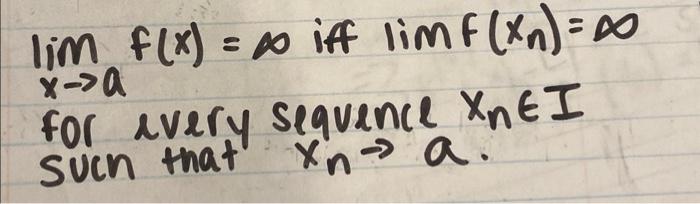 lim f(x) = ∞ iff lim f(xn) = ∞
x->a
for every sequence xn ∈ I
such that xn -> a.